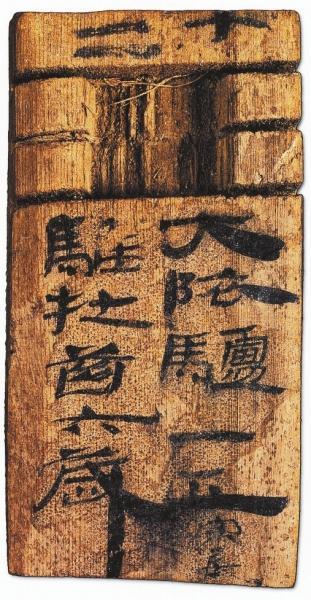 十二
大阮驢一匹
駐牡齒六歲